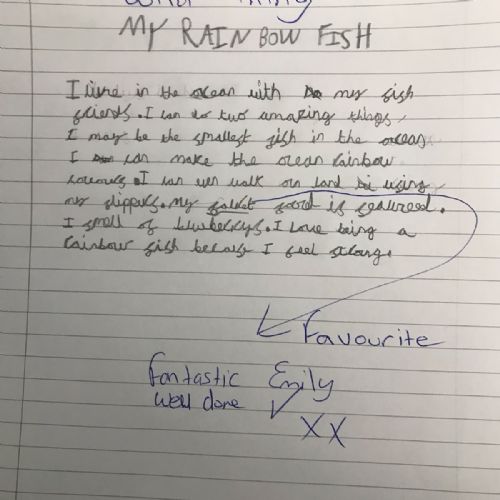 MY RAINBOW FISH
I live in the ocean with my fish
friends. I can do two amazing things,
I may be the smallest fish in the ocean
I can make the ocean rainbow
colours. I can even walk on land using
my flippers. My food is seaweed.
I smell of bluwberrys. I Love being a
rainbow fish because I feel strong.
Favourite
fantastic Emily
well done
XX